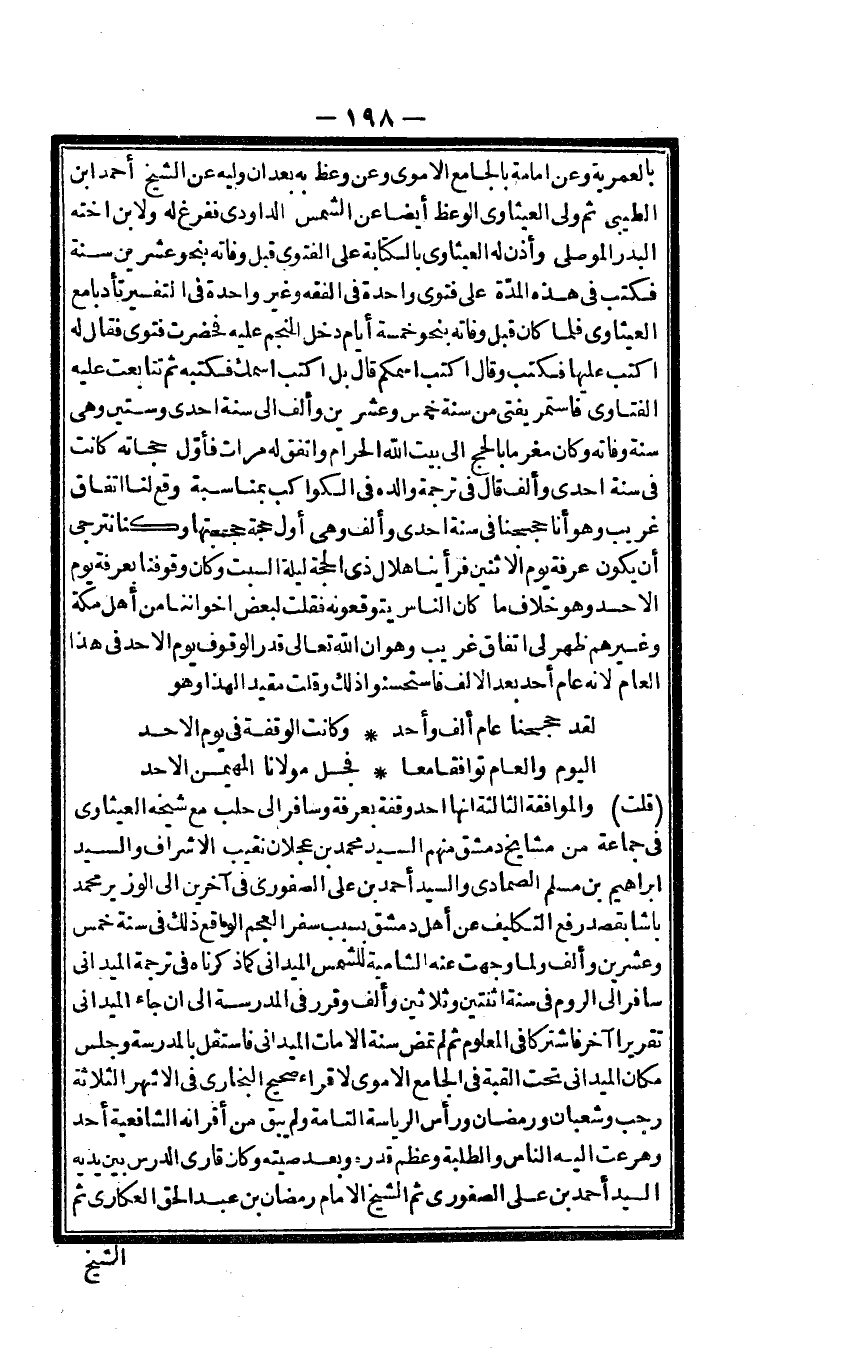 — ١٩٨ —
بالعمرية وعن امامة بالجامع الاموى وعن وعظ به بعد ان وليه عن الشيخ أحمد ابن
الطيبى ثم ولى العيثاوى الوعظ أيضا عن الشمس الداودى ففرغ له ولابن اخته
البدر الموصلى وأذن له العيثاوى بالكتابة على الفتوى قبل وفاته بنحو عشرين سنة
فكتب فى هذه المدّة على فتوى واحدة فى الفقه وغير واحدة فى التفسير تأدبا مع
العيثاوى فلما كان قبل وفاته بنحو خمسة أيام دخل النجم عليه فحضرت فتوى فقال له
اكتب عليها فكتب وقال اكتب اسمكم قال بل اكتب اسمك فكتبه ثم تتابعت عليه
الفتاوى فاستمر يفتى من سنة خمس وعشرين وألف الى سنة احدى وستين وهى
سنة وفاته وكان مغرما بالحج الى بيت الله الحرام واتفق له مرات فأوّل حجاته كانت
فى سنة احدى وألف قال فى ترجمة والده فى الكواكب بمناسبة وقع لنا اتفاق
غريب وهو أنا حججنا فى سنة احدى وألف وهى أول حجة حججتها وكنا نترجى
أن يكون عرفة يوم الاثنين فرأينا هلال ذى الحجة ليلة السبت وكان وقوفنا بعرفة يوم
الاحد وهو خلاف ما كان الناس يتوقعونه فقلت لبعض اخواننا من أهل مكة
وغيرهم ظهر لى اتفاق غريب وهو ان الله تعالى قدر الوقوف يوم الاحد فى هذا
العام لانه عام أحد بعد الالف فاستحسنوا ذلك وقلت مقيدا لهذا وهو
لقد حججنا عام ألف وأحد * وكانت الوقفة فى يوم الاحد
اليوم والعام توافقا معا * فجل مولانا المهيمن الاحد
(قلت) والموافقة الثالثة انها احد وقفة بعرفة وسافر الى حلب مع شيخه العيثاوى
فى جماعة من مشايخ دمشق منهم السيد محمد بن عجلان نقيب الاشراف والسيد
ابراهيم بن مسلم الصمادى والسيد أحمد بن على الصفورى فى آخرين الى الوزير محمد
باشا بقصد رفع التكليف عن أهل دمشق بسبب سفر العجم الواقع ذلك فى سنة خمس
وعشرين وألف ولما وجهت عنه الشامية للشمس الميدانى كما ذكرناه فى ترجمة الميدانى
سافر الى الروم فى سنة اثنتين وثلاثين وألف وقرر فى المدرسة الى ان جاء الميدانى
تقريرا آخر فاشتركا فى المعلوم ثم لم تمض سنة الامات الميدانى فاستقل بالمدرسة وجلس
مكان الميدانى تحت القبة فى الجامع الاموى لاقراء صحيح البخارى فى الاشهر الثلاثة
رجب وشعبان ورمضان ورأس الرياسة التامة ولم يبق من أقرانه الشافعية أحد
وهرعت اليه الناس والطلبة وعظم قدره وبعد صيته وكان قارى الدرس بين يديه
السيد أحمد بن على الصفورى ثم الشيخ الامام رمضان بن عبد الحق العكارى ثم
الشيخ